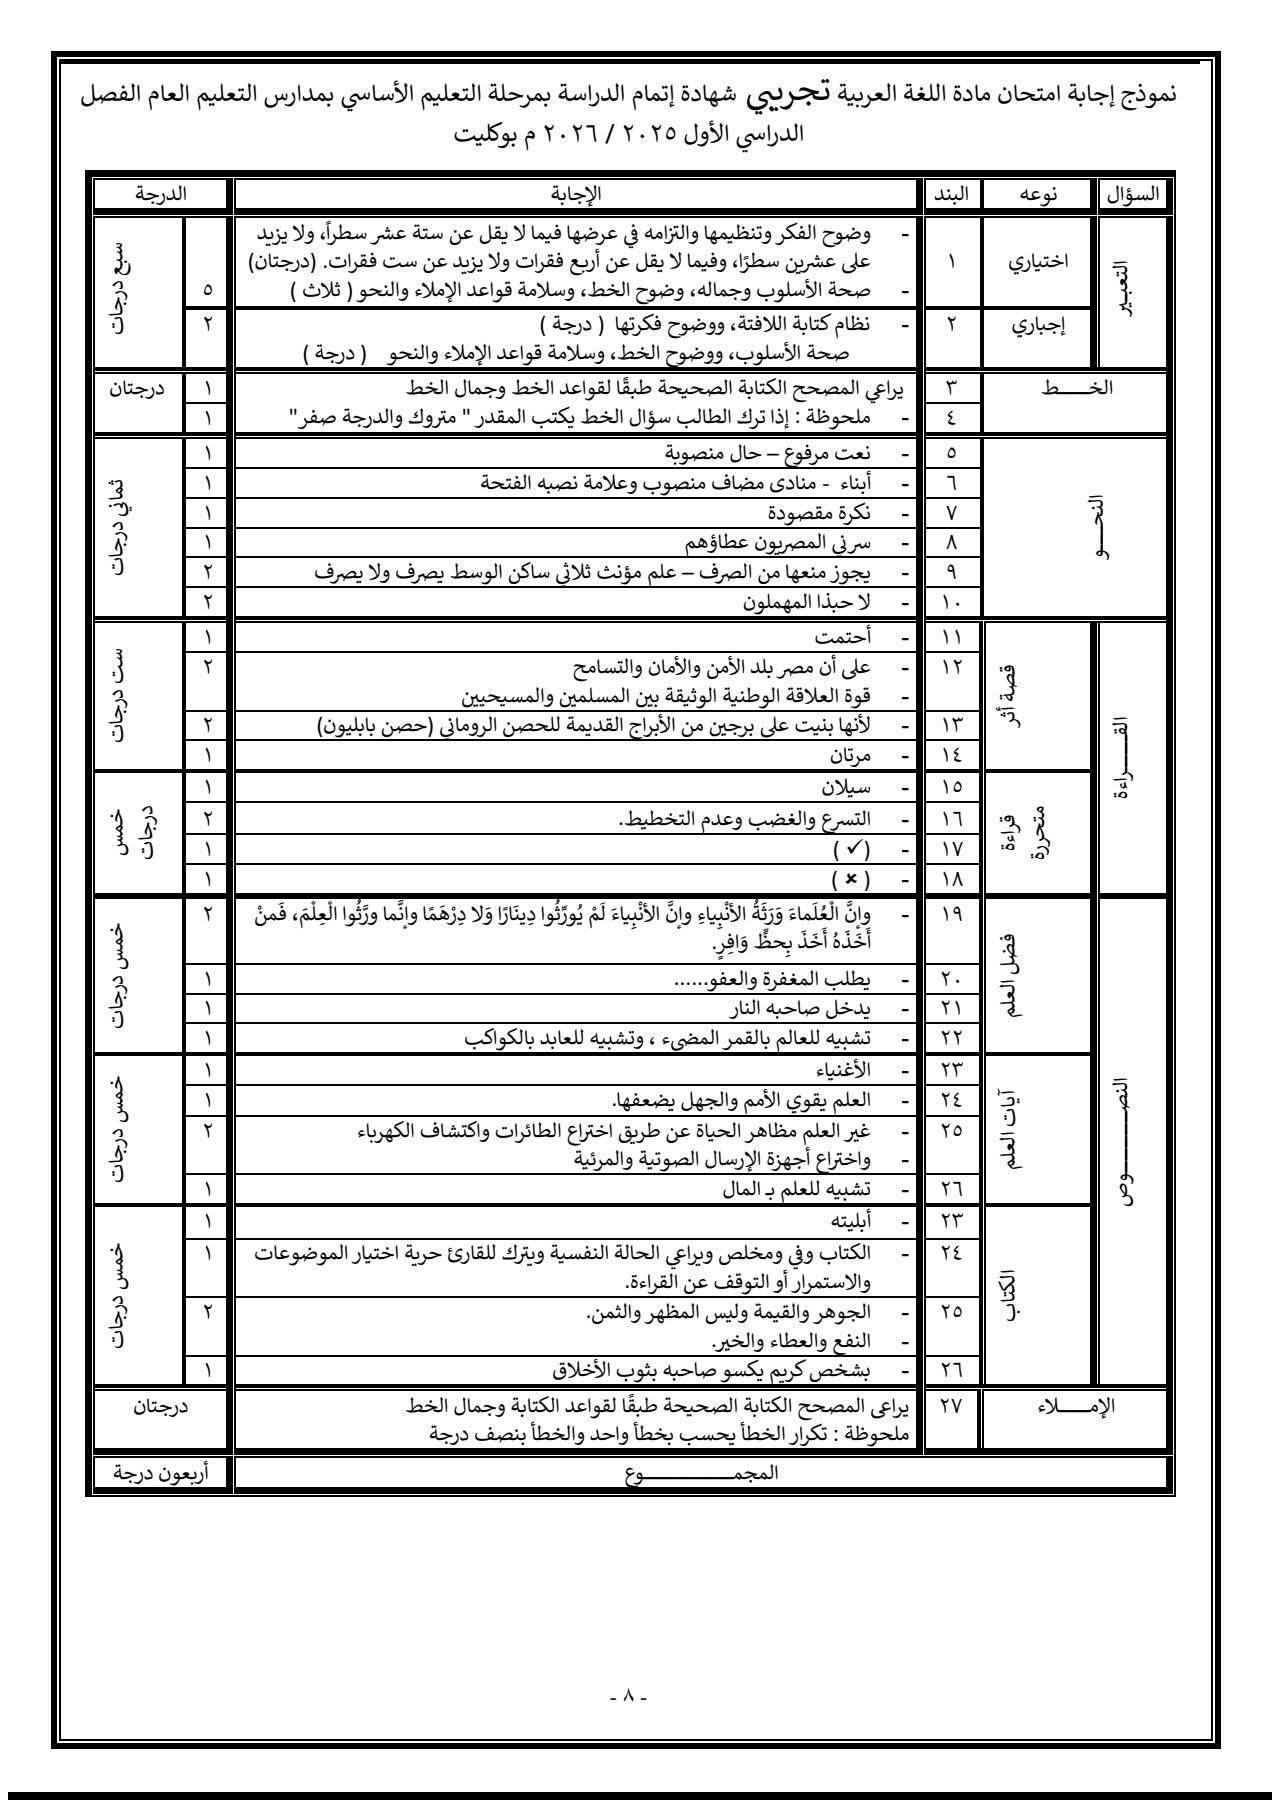 نموذج إجابة امتحان مادة اللغة العربية تجريبي شهادة إتمام الدراسة بمرحلة التعليم الأساسي بمدارس التعليم العام الفصل
الدراسي الأول ٢٠٢٥ / ٢٠٢٦ م بوكليت
السؤال نوعه البند الإجابة الدرجة
التعبير اختياري ١ - وضوح الفكر وتنظيمها والتزامه في عرضها فيما لا يقل عن ستة عشر سطراً، ولا يزيد
على عشرين سطرًا، وفيما لا يقل عن أربع فقرات ولا يزيد عن ست فقرات. (درجتان)
- صحة الأسلوب وجماله، وضوح الخط، وسلامة قواعد الإملاء والنحو ( ثلاث ) ٥ سبع درجات
إجباري ٢ - نظام كتابة اللافتة، ووضوح فكرتها ( درجة ) ٢
صحة الأسلوب، ووضوح الخط، وسلامة قواعد الإملاء والنحو ( درجة )
الخــــط ٣ يراعي المصحح الكتابة الصحيحة طبقًا لقواعد الخط وجمال الخط ١ درجتان
٤ - ملحوظة : إذا ترك الطالب سؤال الخط يكتب المقدر " متروك والدرجة صفر" ١
النحــــو ٥ - نعت مرفوع – حال منصوبة ١ ثماني درجات
٦ - أبناء - منادى مضاف منصوب وعلامة نصبه الفتحة ١
٧ - نكرة مقصودة ١
٨ - سرني المصريون عطاؤهم ١
٩ - يجوز منعها من الصرف – علم مؤنث ثلاثي ساكن الوسط يصرف ولا يصرف ٢
١٠ - لا حبذا المهملون ٢
القــــراءة قصة أثر ١١ - أحتمت ١ ست درجات
١٢ - على أن مصر بلد الأمن والأمان والتسامح ٢
- قوة العلاقة الوطنية الوثيقة بين المسلمين والمسيحيين
١٣ - لأنها بنيت على برجين من الأبراج القديمة للحصن الروماني (حصن بابليون) ٢
١٤ - مرتان ١
قراءة متحررة ١٥ - سيلان ١ خمس درجات
١٦ - التسرع والغضب وعدم التخطيط. ٢
١٧ - (✓ ) ١
١٨ - ( ✗ ) ١
النصــــــوص فضل العلم ١٩ - وإنَّ الْعُلَماءَ وَرَثَةُ الأنْبِياءِ وإنَّ الأنْبِياءَ لَمْ يُورِّثُوا دِينَارًا وَلا دِرْهَمًا وإنَّما ورَّثُوا الْعِلْمَ، فَمنْ ٢ خمس درجات
أَخَذَهُ أَخَذَ بِحظٍّ وَافِرٍ.
٢٠ - يطلب المغفرة والعفو...... ١
٢١ - يدخل صاحبه النار ١
٢٢ - تشبيه للعالم بالقمر المضيء ، وتشبيه للعابد بالكواكب ١
آيات العلم ٢٣ - الأغنياء ١ خمس درجات
٢٤ - العلم يقوي الأمم والجهل يضعفها. ١
٢٥ - غير العلم مظاهر الحياة عن طريق اختراع الطائرات واكتشاف الكهرباء ٢
- واختراع أجهزة الإرسال الصوتية والمرئية
٢٦ - تشبيه للعلم بـ المال ١
الكتاب ٢٣ - أبليته ١ خمس درجات
٢٤ - الكتاب وفي ومخلص ويراعي الحالة النفسية ويترك للقارئ حرية اختيار الموضوعات ١
والاستمرار أو التوقف عن القراءة.
٢٥ - الجوهر والقيمة وليس المظهر والثمن. ٢
- النفع والعطاء والخير.
٢٦ - بشخص كريم يكسو صاحبه بثوب الأخلاق ١
الإمــــلاء ٢٧ يراعى المصحح الكتابة الصحيحة طبقًا لقواعد الكتابة وجمال الخط درجتان
ملحوظة : تكرار الخطأ يحسب بخطأ واحد والخطأ بنصف درجة
المجمــــــــــوع أربعون درجة
- ٨ -